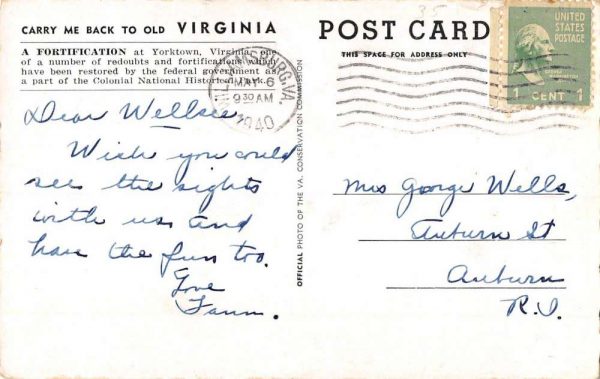 CARRY ME BACK TO OLD VIRGINIA
A FORTIFICATION at Yorktown, Virginia, one
of a number of redoubts and fortifications which
have been restored by the federal government as
a part of the Colonial National Historical Park.
WILLIAMSBURG, VA.
MAY 6
9 30 AM
1940
Dear Wellsee,
Wish you could
see the sights
with us and
have the fun too.
Love
Fann.
OFFICIAL PHOTO OF THE VA. CONSERVATION COMMISSION
POST CARD
THIS SPACE FOR ADDRESS ONLY
UNITED
STATES
POSTAGE
GEORGE
WASHINGTON
1 CENT 1
Mrs George Wells,
Auburn St
Auburn
R.I.